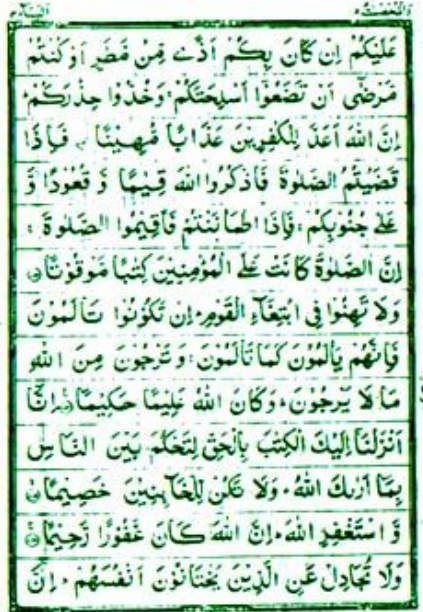 عَلَيْكُمْ اِنْ كَانَ بِكُمْ اَذًى مِّنْ مَّطَرٍ اَوْ كُنْتُمْ
مَّرْضٰٓى اَنْ تَضَعُوْٓا اَسْلِحَتَكُمْ ۚ وَخُذُوْا حِذْرَكُمْ ؕ
اِنَّ اللّٰهَ اَعَدَّ لِلْكٰفِرِيْنَ عَذَابًا مُّهِيْنًا ۞ فَاِذَا
قَضَيْتُمُ الصَّلٰوةَ فَاذْكُرُوا اللّٰهَ قِيٰمًا وَّ قُعُوْدًا وَّ
عَلٰى جُنُوْبِكُمْ ۚ فَاِذَا اطْمَاْنَنْتُمْ فَاَقِيْمُوا الصَّلٰوةَ ۚ
اِنَّ الصَّلٰوةَ كَانَتْ عَلَى الْمُؤْمِنِيْنَ كِتٰبًا مَّوْقُوْتًا ۞
وَلَا تَهِنُوْا فِى ابْتِغَآءِ الْقَوْمِ ؕ اِنْ تَكُوْنُوْا تَاْلَمُوْنَ
فَاِنَّهُمْ يَاْلَمُوْنَ كَمَا تَاْلَمُوْنَ ۚ وَ تَرْجُوْنَ مِنَ اللّٰهِ
مَا لَا يَرْجُوْنَ ؕ وَكَانَ اللّٰهُ عَلِيْمًا حَكِيْمًا ۞ اِنَّآ
اَنْزَلْنَآ اِلَيْكَ الْكِتٰبَ بِالْحَقِّ لِتَحْكُمَ بَيْنَ النَّاسِ
بِمَآ اَرٰىكَ اللّٰهُ ؕ وَلَا تَكُنْ لِّلْخَآئِنِيْنَ خَصِيْمًا ۞
وَّ اسْتَغْفِرِ اللّٰهَ ؕ اِنَّ اللّٰهَ كَانَ غَفُوْرًا رَّحِيْمًا ۞
وَلَا تُجَادِلْ عَنِ الَّذِيْنَ يَخْتَانُوْنَ اَنْفُسَهُمْ ؕ اِنَّ